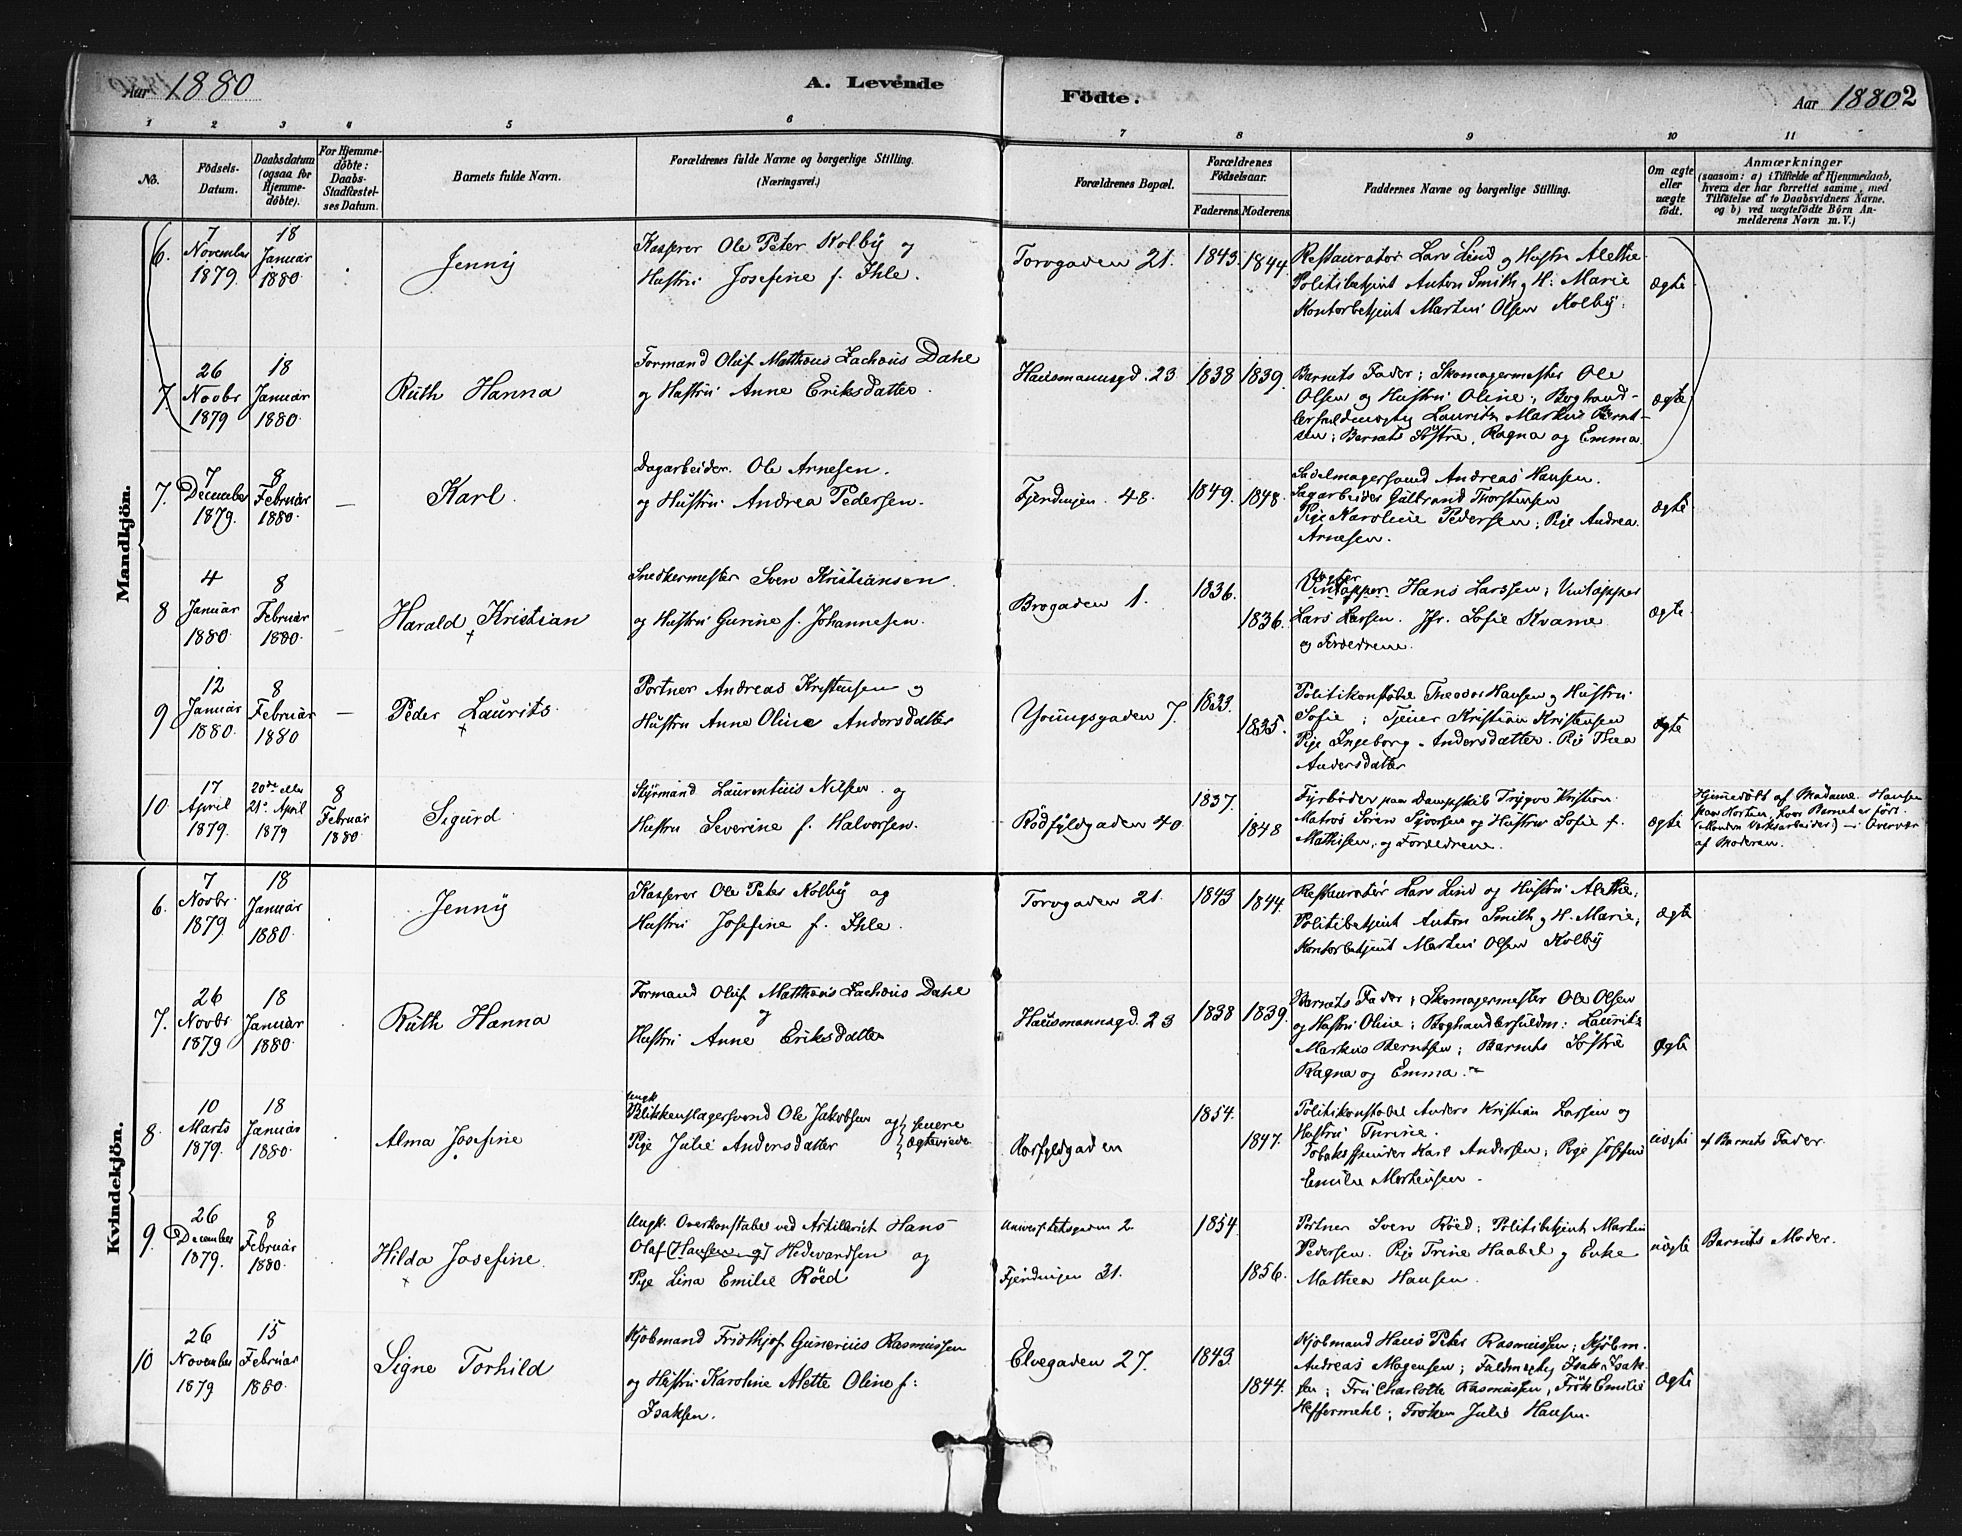 Aar 1880
A. Levende
Födte.
Aar 1880 2
1 2 3 4 5 6 7 8 9 10 11
No.
Födsels-
Datum.
Daabsdatum
(ogsaa for
Hjemme-
döbte).
For Hjemme-
döbte:
Daabs-
Stadfæstel-
ses Datum.
Barnets fulde Navn.
Forældrenes fulde Navne og borgerlige Stilling.
(Næringsvei.)
Forældrenes Bopæl.
Forældrenes
Födselsaar.
Faderens. Moderens.
Faddernes Navne og borgerlige Stilling.
Om ægte
eller
uægte
födt.
Anmærkninger
(saasom: a) i Tilfælde af Hjemmedaab,
hvem der har forrettet samme, med
Tilföielse af to Daabsvidners Navne.
og b) ved uægtefödte Börn An-
melderens Navn m. V.)
Mandkjön.
6.
7
November
1879.
18
Januar
1880
Jenny
Kasserer Ole Peter Kolby og
Hustru Josefine f. Ihle.
Torvgaden 21.
1843. 1844.
Restauratør Lars Lind og Hustru Alethe
Politibetjent Anton Smith og H: Marie
Kontorbetjent Martin Olsen Kolby.
ægte
7.
26
Novbr
1879
18
Januar
1880.
Ruth Hanna
Formand Oluf Mathæus Zachæus Dahl
og Hustru Anne Eriksdatter.
Hausmannsgd. 23
1838 1839.
Barnets Fader; Skomagermester Ole
Olsen og Hustru Oline; Boghand-
lerfuldmægtig Lauritz Markus Bernt-
sen; Barnets Søstre, Ragna og Emma.
ægte
7.
7
December
1879.
8
Februar
1880.
—
Karl.
Dagarbeider. Ole Arnesen.
og Hustru Andrea Pedersen.
Fjerdingen 48.
1849. 1848.
Sadelmagersvend Andreas Hansen.
Sagarbeider Gulbrand Thorstensen
Pige Karoline Pedersen; Pige Andrea
Arnesen.
ægte
8
4
Januar
1880.
8
Februar
1880.
—
Harald Kristian
Snedkermester Sven Kristiansen.
og Hustru Gurine f. Johannesen.
Brogaden 1.
1836. 1836.
Vintapper Hans Larssen; Vintapper
Lars Larsen. Jfr. Sofie Kvame
og Forældrene.
ægte.
9
12
Januar
1880.
8
Februar
1880
—
Peder Laurits.
Portner Andreas Kristensen og
Hustru Anne Oline Andersdatter
Youngsgaden 7.
1833. 1835.
Politikonstabel Theodor Hansen og Hustru.
Sofie; Tjener Kristian Kristensen
Pige Ingeborg Andersdatter. Pige Thea
Andersdatter
ægte
10.
17
April
1879.
20de eller
21. April
1879
8
Februar
1880.
Sigurd
Styrmand Laurentius Nilsen og
Hustru Severine f. Halvorsen.
Rødfyldgaden 40.
1837. 1848
Fyrbøder paa Dampskib Trygve Kristian
Matros Søren Syversen og Hustru Sofie f.
Mathisen, og Forældrene.
ægte
Hjemmedøbt af Madame Hansen
paa Horten, hvor Barnet er født
(Manden Værksarbeider) — i Overvær
af Moderen.
Kvindekjön.
6.
7
Novbr.
1879
18
Januar
1880.
Jenny
Kasserer Ole Peter Kolby og
Hustru Josefine f. Ihle.
Torvgaden 21.
1843 1844.
Restauratør Lars Lind og Hustru Alethe;
Politibetjent Anton Smith og H. Marie;
Kontorbetjent Martin Olsen Kolby
ægte
7.
26
Novbr
1879
18
Januar
1880.
Ruth Hanna
Formand Oluf Mathæus Zachæus Dahl
og
Hustru Anne Eriksdatter
Hausmannsgd. 23
1838 1839.
Barnets Fader; Skomagermester Ole Olsen
og Hustru Oline; Boghandlerfuldm: Lauritz
Markus Berntsen; Barnets Søstre
Ragna og Emma.
ægte
8.
10
Marts
1879.
18
Januar
1880.
Alma Josefine
Ungk.
Blikkenslagersvend Ole Jakobsen og
Pige Julie Andersdatter
senere
ægteviede
Rosfyldgaden
1854. 1847.
Politikonstabel Anders Kristian Larsen og
Hustru Turine.
Tobaksspinder Karl Andersen; Pige Josefine
Emilie Mortensen.
uægte
af Barnets Fader.
9.
26
December
1879.
8
Februar
1880.
Hilda Josefine.
Ungk. Overkonstabel ved Artilleriet Hans
Olaf (Hansen og) Hedevardsen og
Pige Lina Emilie Röed
Universitetsgaden 2
Fjerdingen 31.
1854. 1856.
Portner Sven Röed; Politibetjent Martin
Pedersen. Pige Trine Haabel og Enke
Mathea Hansen.
uægte
Barnets Moder.
10
26
November
1879
15
Februar
1880.
Signe Torhild
Kjøbmand Fridthjof Gunerius Rasmussen
og Hustru Karoline Alette Oline f:
Isaksen.
Elvegaden 27.
1843. 1844.
Kjøbmand Hans Peter Rasmussen; Kjøbm.
Andreas Mogensen; Fuldmægtig Isak Isak-
sen; Fru Charlotte Rasmussen, Frøk Emilie
Heffermehl; Frøken Julie Hansen.
ægte